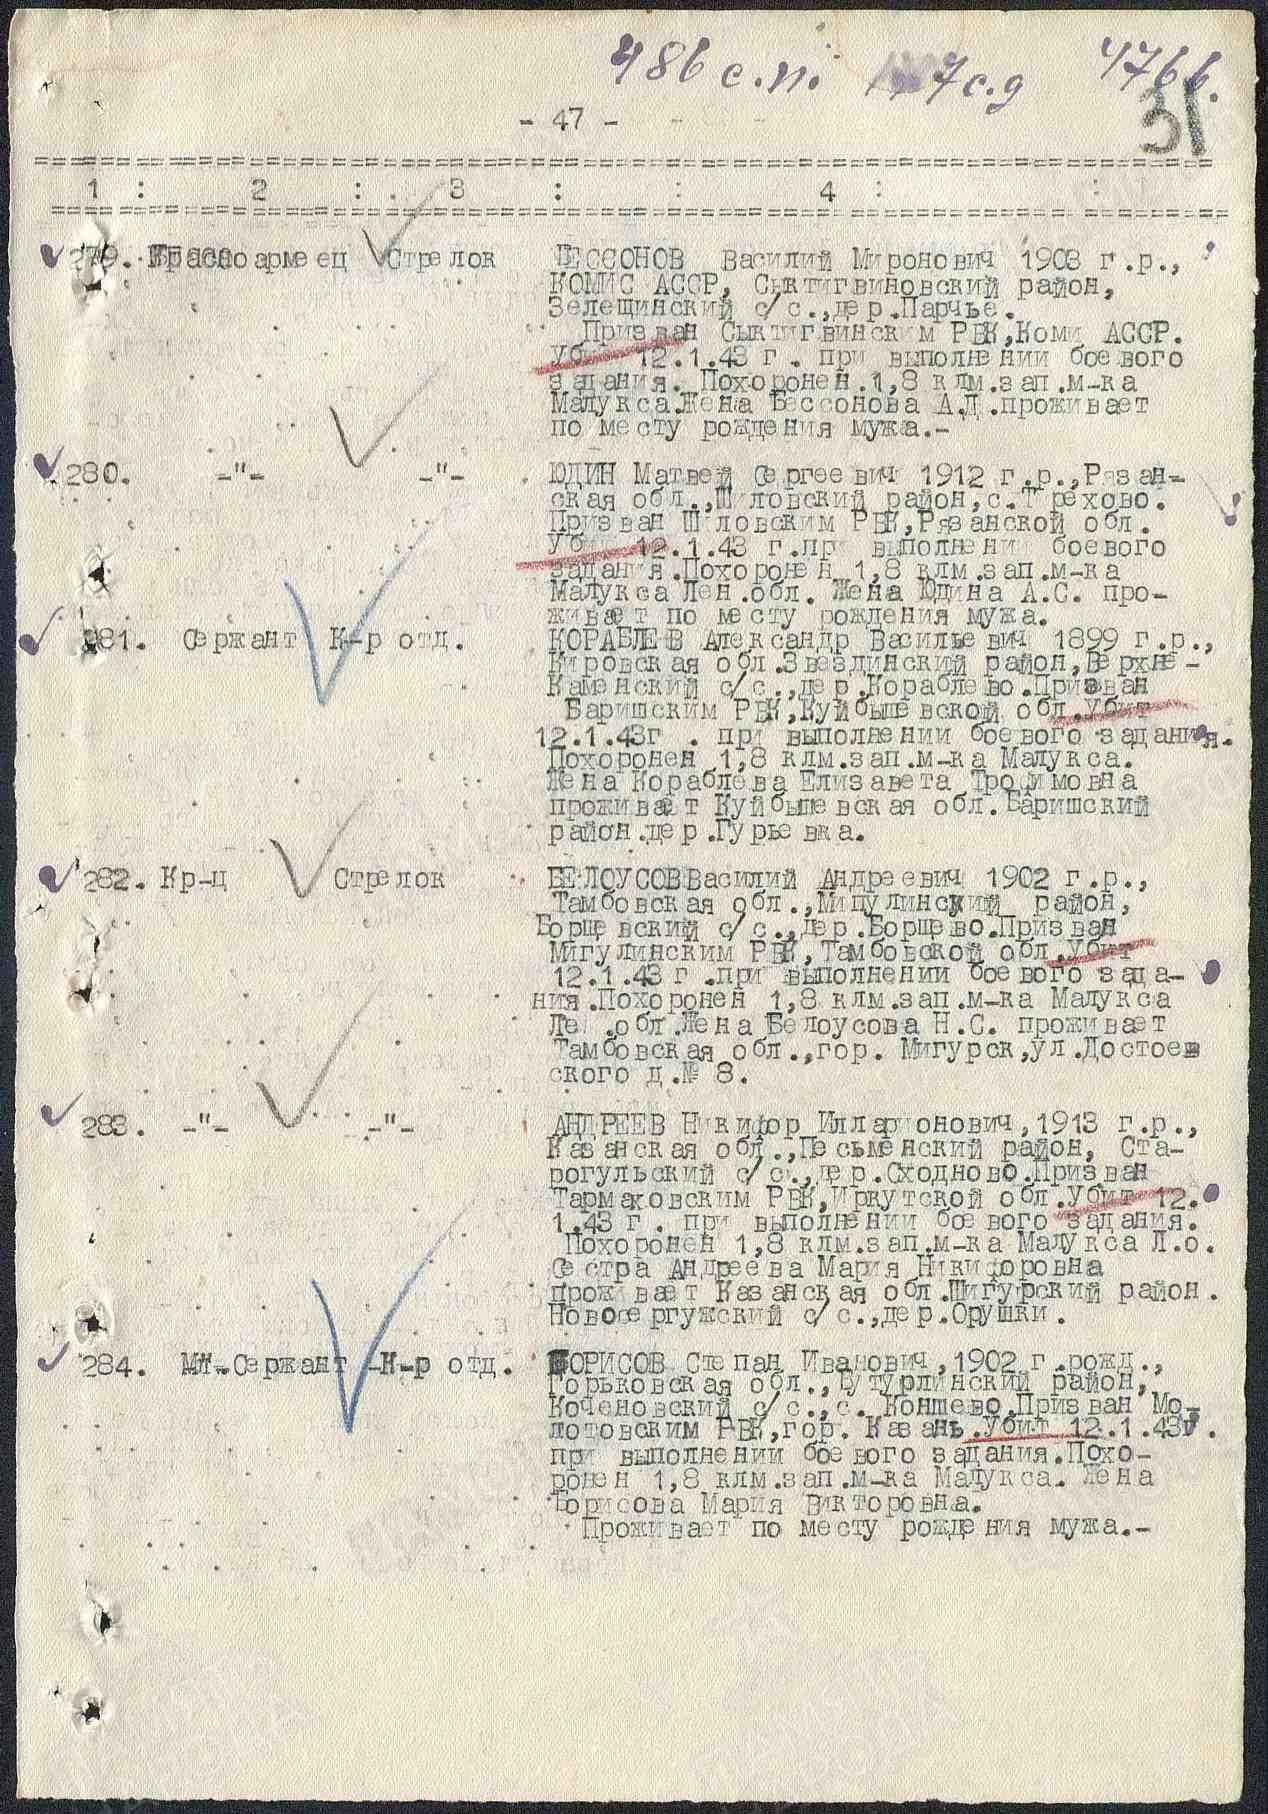 486 с.п. 7 с.д 476 в.
31
- 47 -
1 : 2 : 3 : 4 :
279. Красноармеец Стрелок БЕССОНОВ Василий Миронович 1903 г.р.,
КОМИС АССР, Сыктигвиновский район,
Зелещинский с/с.,дер.Парчье.
Призван Сыктигвинским РВК,Коми АССР.
Убит 12.1.43 г. при выполнении боевого
задания. Похоронен 1,8 клм.зап.м-ка
Малукса.Жена Бессонова А.Д.проживает
по месту рождения мужа.-
280. -"- -"- ЮДИН Матвей Сергеевич 1912 г.р.,Рязан-
ская обл.,Шиловский район,с.Трехово.
Призван Шиловским РВК,Рязанской обл.
Убит 12.1.43 г.при выполнении боевого
задания.Похоронен 1,8 клм.зап.м-ка
Малукса Лен.обл. Жена Юдина А.С. про-
живает по месту рождения мужа.
281. Сержант К-р отд. КОРАБЛЕВ Александр Васильевич 1899 г.р.,
Кировская обл.Звездинский район,Верхне-
Каменский с/с.,дер.Кораблево.Призван
Баришским РВК,Куйбышевской обл.Убит
12.1.43г . при выполнении боевого задания.
Похоронен 1,8 клм.зап.м-ка Малукса.
Жена Кораблева Елизавета Трофимовна
проживает Куйбышевская обл.Баришский
район.дер.Гурьевка.
282. Кр-ц Стрелок БЕЛОУСОВ Василий Андреевич 1902 г.р.,
Тамбовская обл.,Мицулинский район,
Борщевский с/с.,дер.Борщево.Призван
Мигулинским РВК,Тамбовской обл.Убит
12.1.43 г.при выполнении боевого зада-
ния.Похоронен 1,8 клм.зап.м-ка Малукса
Ле .обл.Жена Белоусова Н.С. проживает
Тамбовская обл.,гор. Мигурск,ул.Достоев
ского д.№ 8.
283. -"- -"- АНДРЕЕВ Никифор Илларионович,1913 г.р.,
Казанская обл.,Песьменский район, Ста-
рогульский с/с.,дер.Сходново.Призван
Тармаховским РВК,Иркутской обл.Убит 12.
1.43 г. при выполнении боевого задания.
Похоронен 1,8 клм.зап.м-ка Малукса Л.о.
Сестра Андреева Мария Никифоровна
проживает Казанская обл.Шигурский район.
Новосергужский с/с.,дер.Орушки.
284. Мл.Сержант -К-р отд. БОРИСОВ Степан Иванович,1902 г.рожд.,
Горьковская обл.,Бутурлинский район,
Коченовский с/с.,с. Коншево.Призван Мо-
лотовским РВК,гор. Казань.Убит 12.1.43г.
при выполнении боевого задания.Похо-
ронен 1,8 клм.зап.м-ка Малукса. Жена
Борисова Мария Викторовна.
Проживает по месту рождения мужа.-